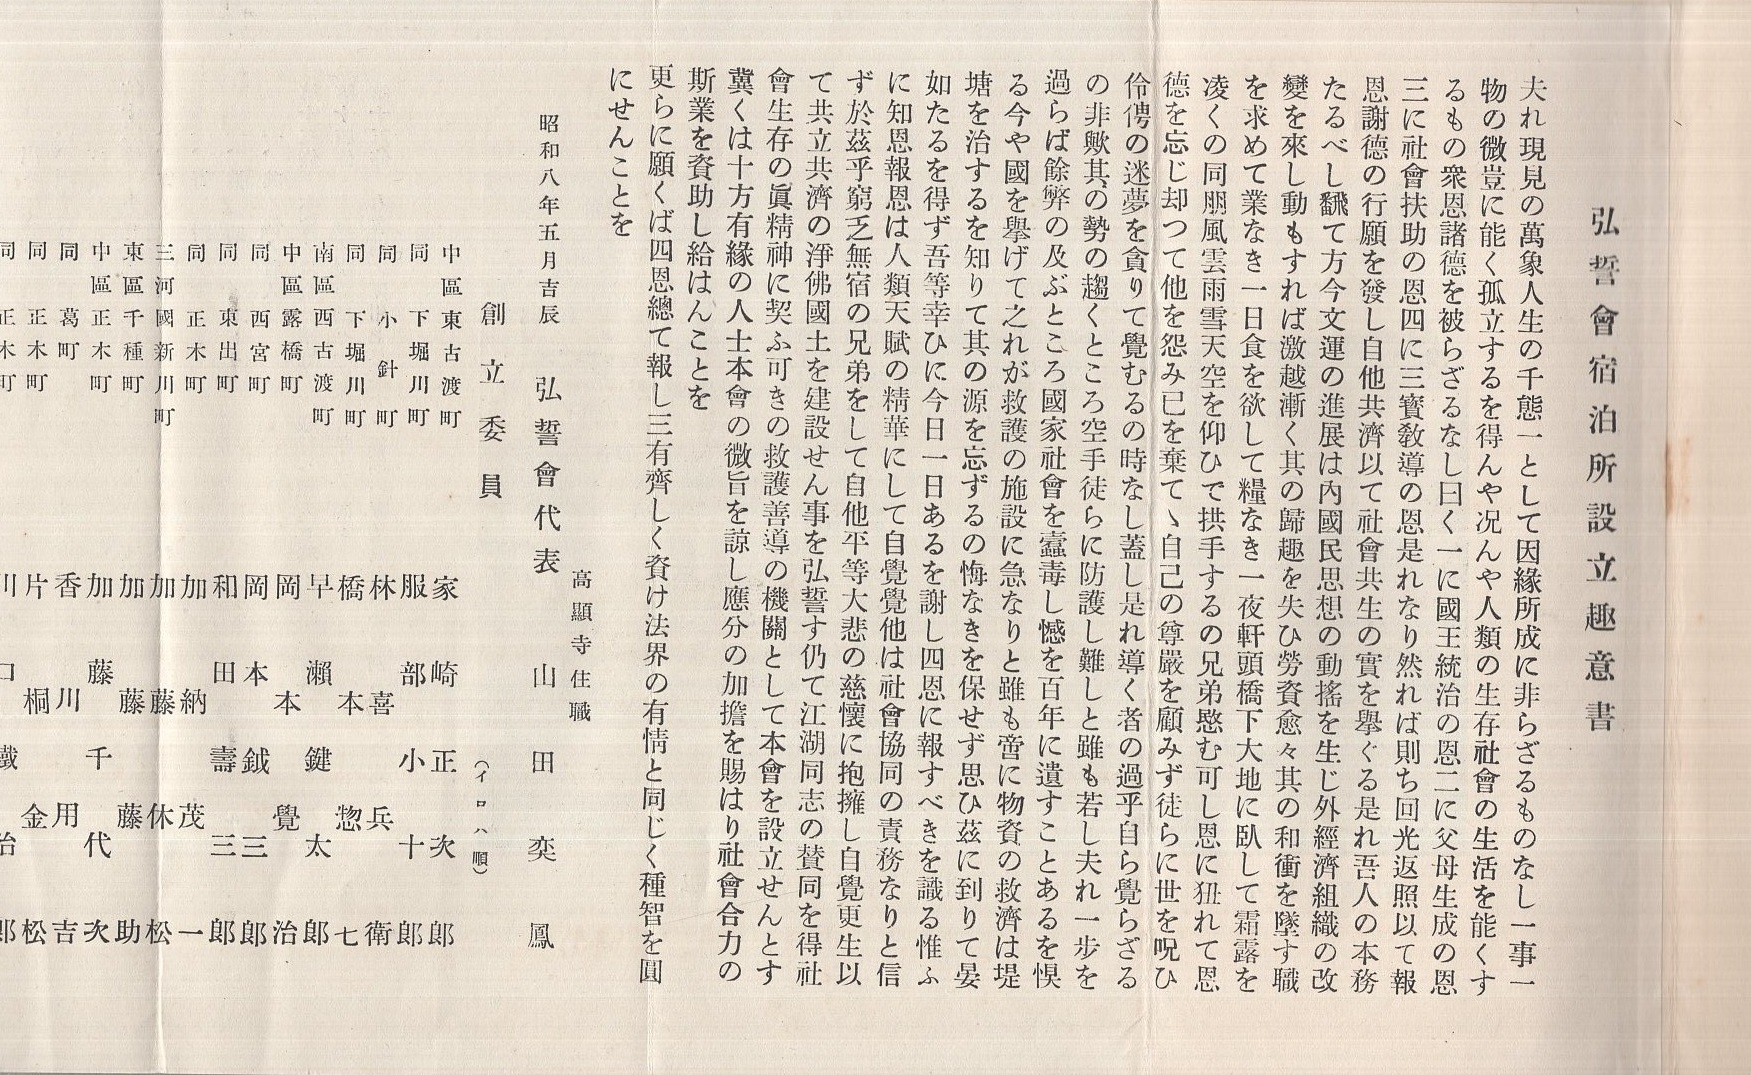 弘誓會宿泊所設立趣意書
夫れ現見の萬象人生の千態一として因緣所成に非らざるものなし一事一
物の微豈に能く孤立するを得んや况んや人類の生存社會の生活を能くす
るもの衆恩諸德を被らざるなし曰く一に國王統治の恩二に父母生成の恩
三に社會扶助の恩四に三寳敎導の恩是れなり然れば則ち回光返照以て報
恩謝德の行願を發し自他共濟以て社會共生の實を擧ぐる是れ吾人の本務
たるべし飜て方今文運の進展は內國民思想の動搖を生じ外經濟組織の改
變を來し動もすれば激越漸く其の歸趣を失ひ勞資愈々其の和衝を墜す職
を求めて業なき一日食を欲して糧なき一夜軒頭橋下大地に臥して霜露を
凌くの同朋風雲雨雪天空を仰ひで拱手するの兄弟愍む可し恩に狃れて恩
德を忘じ却つて他を怨み已を棄てヽ自己の尊嚴を顧みず徒らに世を呪ひ
伶俜の迷夢を貪りて覺むるの時なし蓋し是れ導く者の過乎自ら覺らざる
の非歟其の勢の趨くところ空手徒らに防護し難しと雖も若し夫れ一步を
過らば餘弊の及ぶところ國家社會を蠹毒し憾を百年に遺すことあるを惧
る今や國を擧げて之れが救護の施設に急なりと雖も啻に物資の救濟は堤
塘を治するを知りて其の源を忘ずるの悔なきを保せず思ひ茲に到りて晏
如たるを得ず吾等幸ひに今日一日あるを謝し四恩に報すべきを識る惟ふ
に知恩報恩は人類天賦の精華にして自覺覺他は社會協同の責務なりと信
ず於茲乎窮乏無宿の兄弟をして自他平等大悲の慈懷に抱擁し自覺更生以
て共立共濟の淨佛國土を建設せん事を弘誓す仍て江湖同志の賛同を得社
會生存の眞精神に契ふ可きの救護善導の機關として本會を設立せんとす
冀くは十方有緣の人士本會の微旨を諒し應分の加擔を賜はり社會合力の
斯業を資助し給はんことを
更らに願くば四恩總て報し三有齊しく資け法界の有情と同じく種智を圓
にせんことを
高顯寺住職
昭和八年五月吉辰 弘誓會代表 山田奕鳳
創立委員 (イロハ順)
中區東古渡町 家崎正次郎
同 下堀川町 服部小十郎
同 小針町 林喜兵衛
同 下堀川町 橋本惣七
南區西古渡町 早瀨鍵太郎
中區露橋町 岡本覺治
同 西宮町 岡本鉞三郎
同 東出町 和田壽三郎
同 正木町 加納茂一
三河國新川町 加藤休松
東區千種町 加藤藤助
中區正木町 加藤千代次
同 葛町 香川用吉
同 正木町 片桐金松
同 正木町 川口鐵治郎